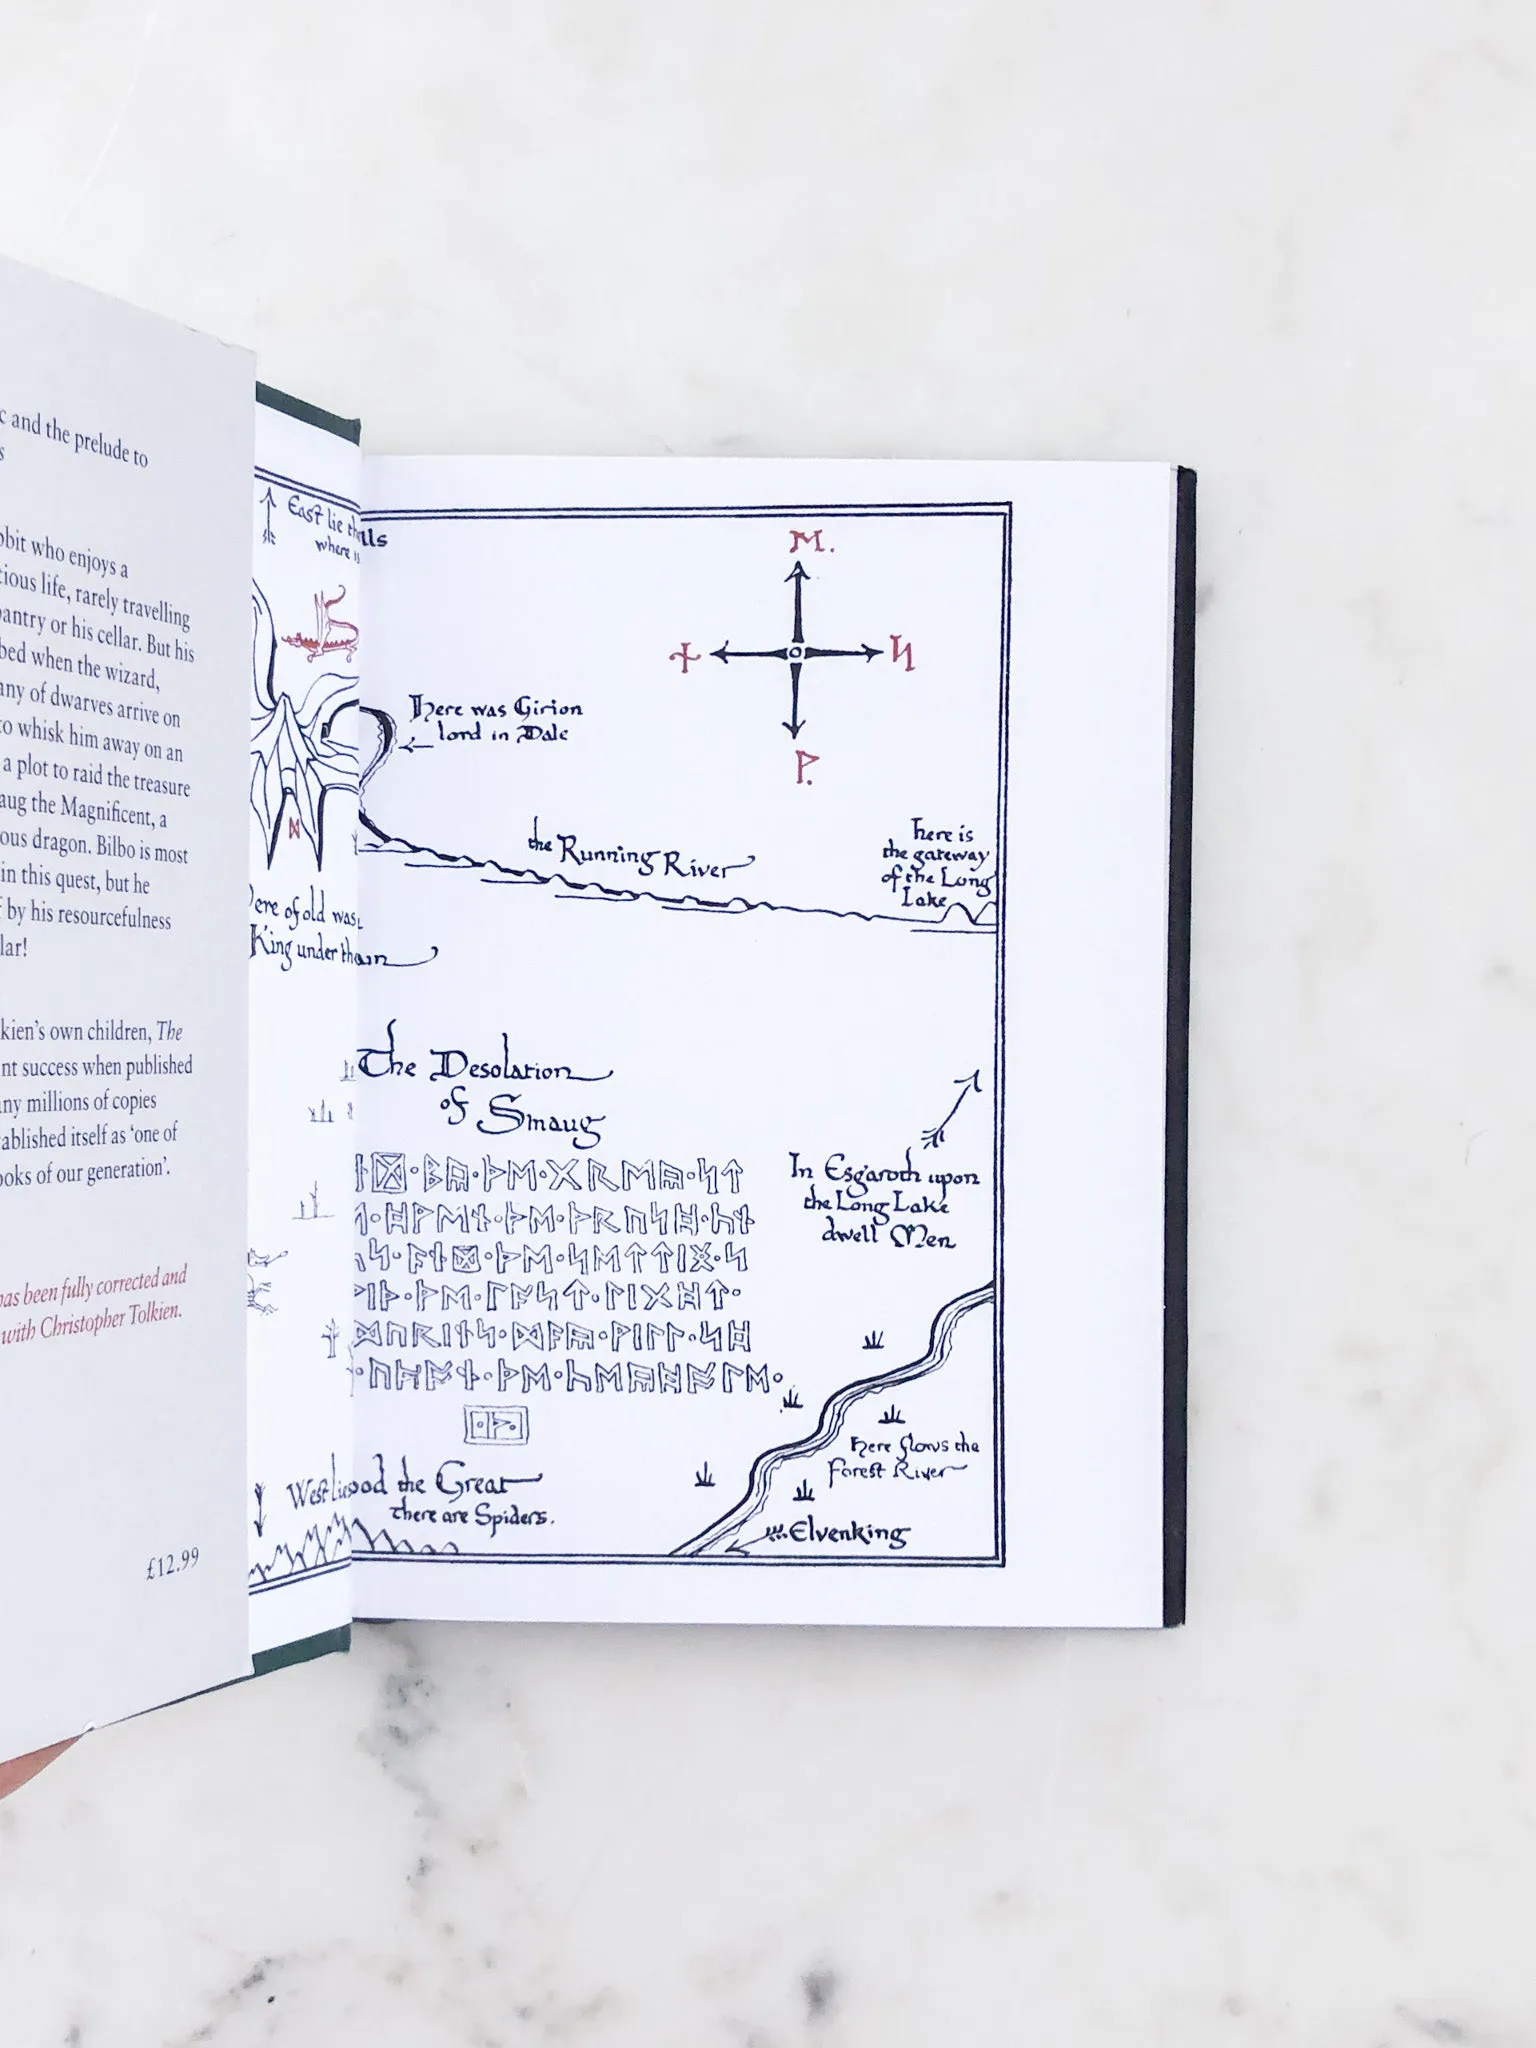 c and the prelude to
s
bbit who enjoys a
tious life, rarely travelling
pantry or his cellar. But his
bed when the wizard,
any of dwarves arrive on
to whisk him away on an
a plot to raid the treasure
aug the Magnificent, a
ous dragon. Bilbo is most
in this quest, but he
f by his resourcefulness
lar!
kien's own children, The
nt success when published
ny millions of copies
tablished itself as 'one of
ooks of our generation'.
has been fully corrected and
with Christopher Tolkien.
£12.99
East lie th lls
where is
ᛖ.
ᛋ
ᚹ.
Here was Girion
lord in Dale
ᛞ
the Running River
Here is
the gateway
of the Long
Lake
Here of old was
King under th ain
The Desolation
of Smaug
ᛥ᛫ᛒᚣ᛫ᚦᛖ᛫ᚷᚱᛖᚣ᛫ᛋᛏ
᛫ᚻᚹᛖᚾ᛫ᚦᛖ᛫ᚦᚱᚢᛋᚻ᛫ᚳᚾ
ᛋ᛫ᚪᚾᛥ᛫ᚦᛖ᛫ᛋᛖᛏᛏᛁᛝ᛫ᛋ
ᚹᛁᚦ᛫ᚦᛖ᛫ᛚᚪᛋᛏ᛫ᛚᛁᚷᚻᛏ᛫
ᛞᚢᚱᛁᚾᛋ᛫ᛞᚪᚣ᛫ᚹᛁᛚᛚ᛫ᛋᚻ
᛫ᚢᛈᚩᚾ᛫ᚦᛖ᛫ᚳᛖᚣᚻᚩᛚᛖ᛫
᛫ᚦ᛫
In Esgaroth upon
the Long Lake
dwell Men
Here flows the
Forest River
Elvenking
West lies ood the Great
there are Spiders.